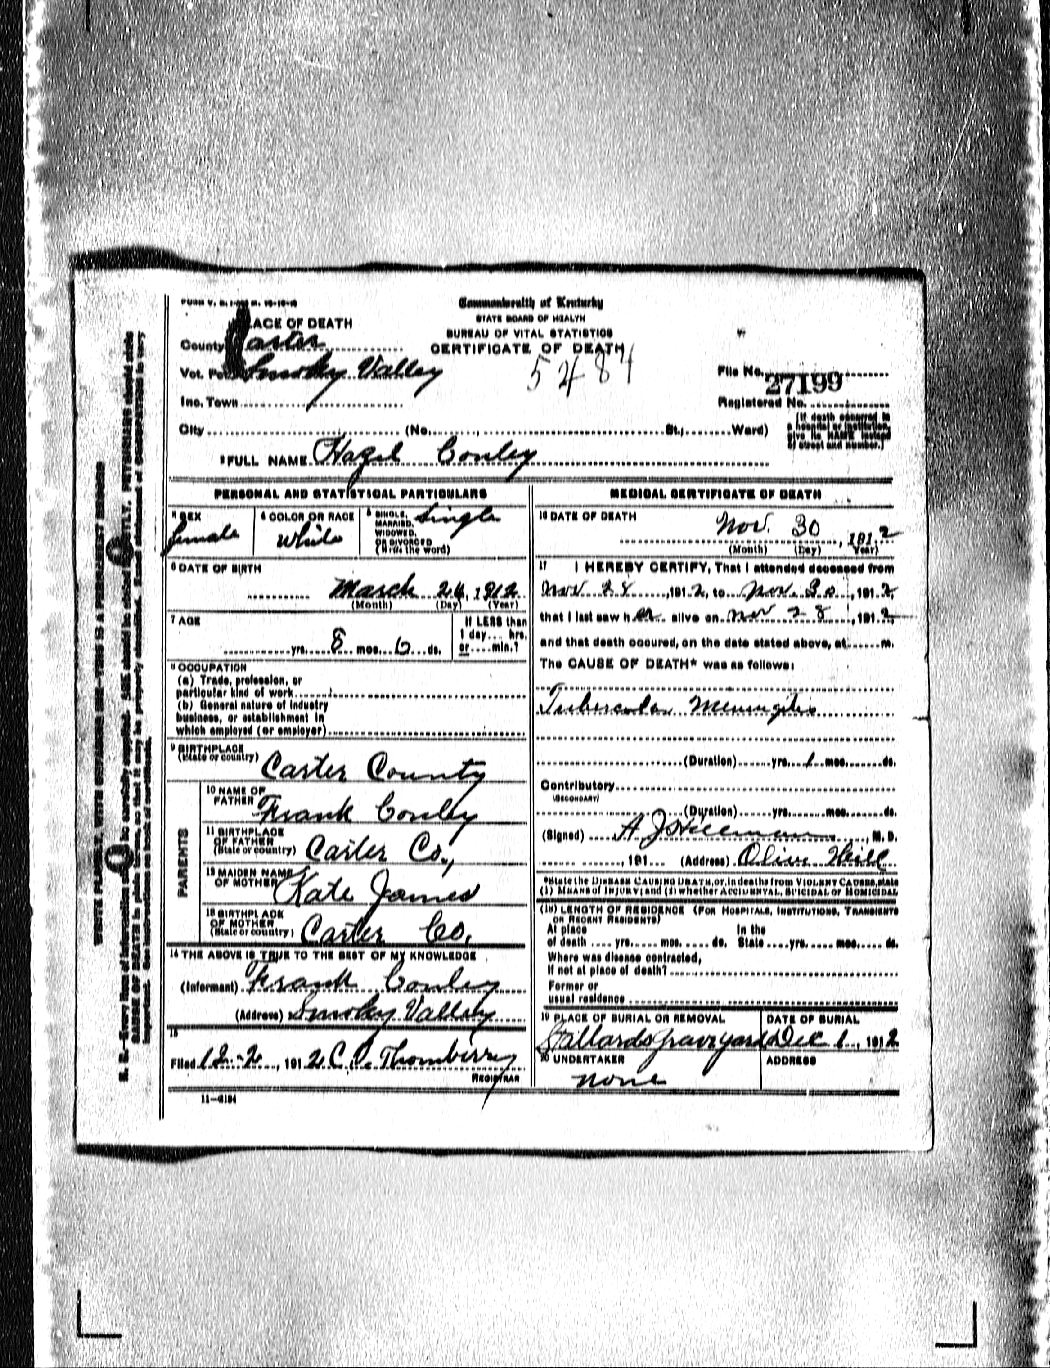 Commonwealth of Kentucky
STATE BOARD OF HEALTH
BUREAU OF VITAL STATISTICS
CERTIFICATE OF DEATH
LACE OF DEATH
County Carter
Vot. Smoky Valley
5484
File No. 27199
Inc. Town
Registered No.
City (No. St., Ward)
(If death occurred in a hospital or institution, give its NAME instead of street and number.)
FULL NAME Hazel Conley
PERSONAL AND STATISTICAL PARTICULARS
SEX female
4 COLOR OR RACE White
5 SINGLE, MARRIED, WIDOWED, OR DIVORCED (Write the word) Single
6 DATE OF BIRTH
March 24, 1912
(Month) (Day) (Year)
7 AGE
yrs. 8 mos. 6 ds.
If LESS than 1 day... hrs. or... min.?
8 OCCUPATION
(a) Trade, profession, or
particular kind of work
(b) General nature of industry
business, or establishment in
which employed (or employer)
9 BIRTHPLACE
(State or country) Carter County
PARENTS
10 NAME OF FATHER Frank Conley
11 BIRTHPLACE OF FATHER (State or country) Carter Co,
12 MAIDEN NAME OF MOTHER Kate James
13 BIRTHPLACE OF MOTHER (State or country) Carter Co,
14 THE ABOVE IS TRUE TO THE BEST OF MY KNOWLEDGE
(Informant) Frank Conley
(Address) Smoky Valley
15
Filed 12-2, 1912 C. Thornberry
REGISTRAR
11-6184
MEDICAL CERTIFICATE OF DEATH
16 DATE OF DEATH
Nov. 30, 1912
(Month) (Day) (Year)
17 I HEREBY CERTIFY, That I attended deceased from
Nov 24, 1912, to Nov. 30, 1912
that I last saw her alive on Nov 28, 1912,
and that death occured, on the date stated above, at m.
The CAUSE OF DEATH* was as follows:
Tubercular Meningitis
(Duration) yrs. 1 mos. ds.
Contributory
(SECONDARY)
(Duration) yrs. mos. ds.
(Signed) A J Stillman, M. D.
, 191 (Address) Olive Hill
*State the DISEASE CAUSING DEATH, or, in deaths from VIOLENT CAUSES, state
(1) MEANS OF INJURY; and (2) whether ACCIDENTAL, SUICIDAL or HOMICIDAL
(18) LENGTH OF RESIDENCE (FOR HOSPITALS, INSTITUTIONS, TRANSIENTS
OR RECENT RESIDENTS)
At place In the
of death yrs. mos. ds. State yrs. mos. ds.
Where was disease contracted,
If not at place of death?
Former or
usual residence
19 PLACE OF BURIAL OR REMOVAL
graveyard
DATE OF BURIAL
Dec 1, 1912
20 UNDERTAKER
none
ADDRESS